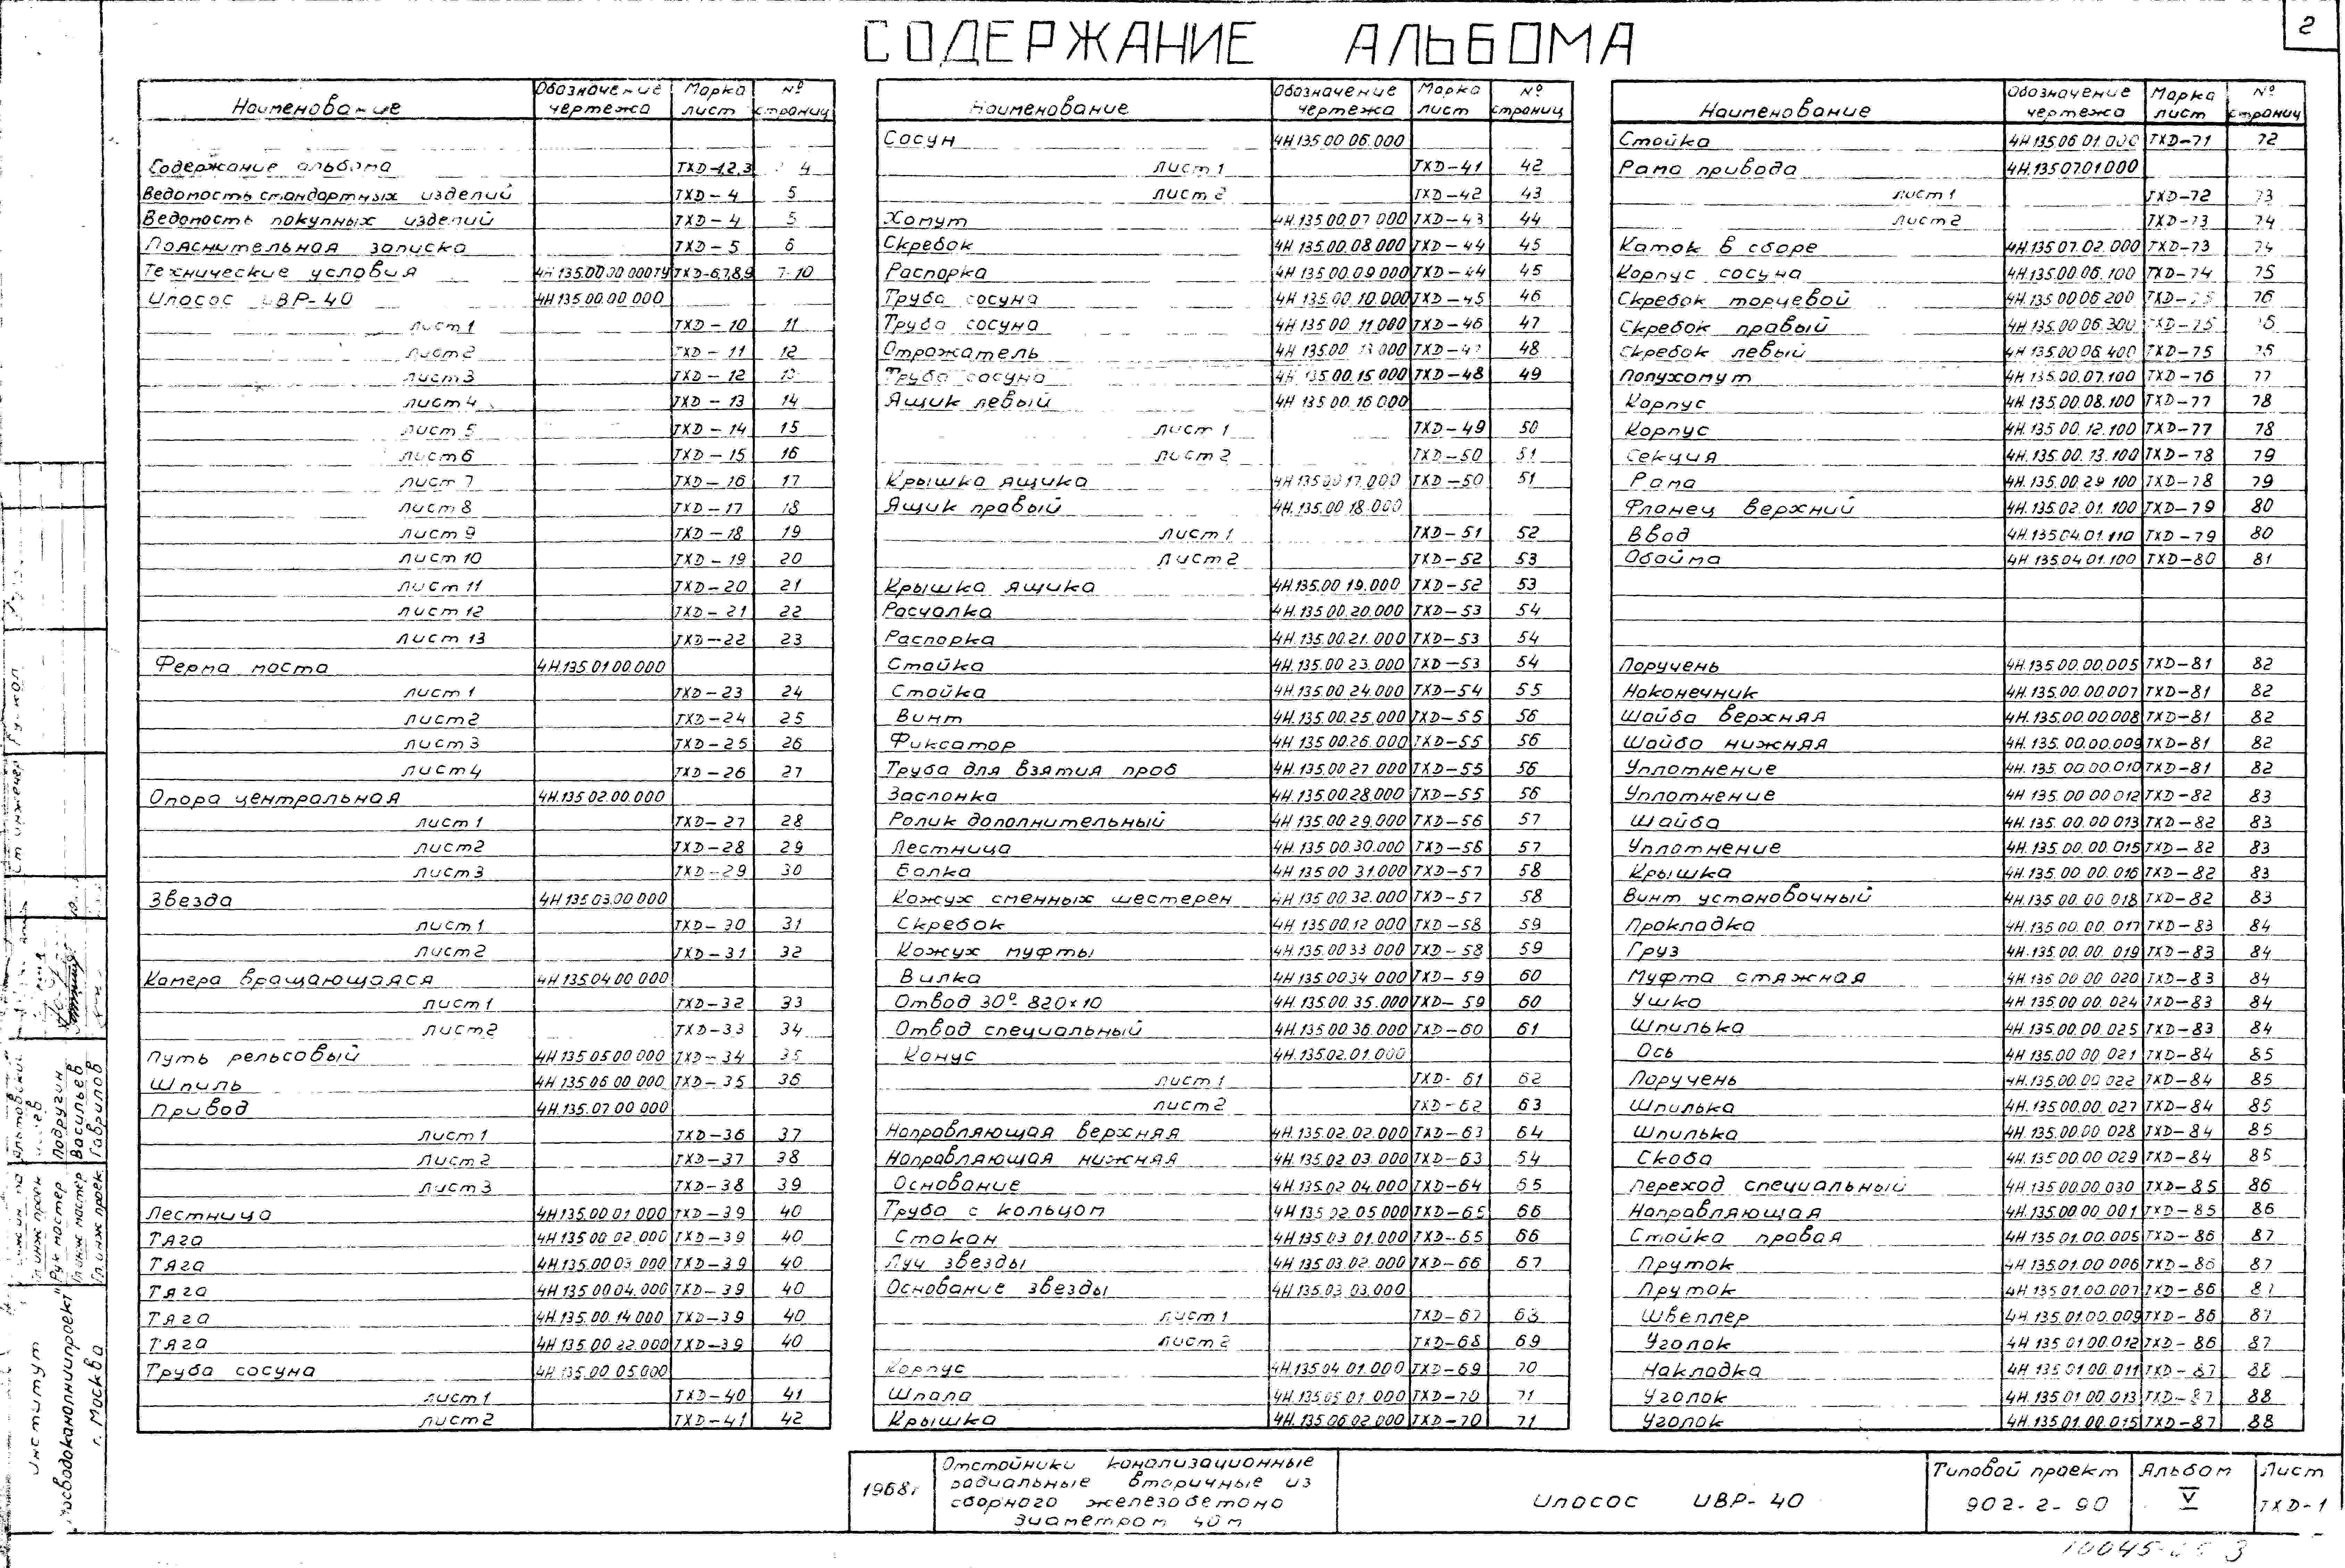 2
СОДЕРЖАНИЕ АЛЬБОМА
Наименование Обозначение чертежа Марка лист № страниц
Содержание альбома ТХD-1,2,3 4
Ведомость стандартных изделий ТХD-4 5
Ведомость покупных изделий ТХD-4 5
Пояснительная записка ТХD-5 6
Технические условия 4Н135.00.00.000ТУ ТХD-6,7,8,9 7-10
Илосос ИВР-40 4Н135.00.00.000
лист 1 ТХD-10 11
лист 2 ТХD-11 12
лист 3 ТХD-12 13
лист 4 ТХD-13 14
лист 5 ТХD-14 15
лист 6 ТХD-15 16
лист 7 ТХD-16 17
лист 8 ТХD-17 18
лист 9 ТХD-18 19
лист 10 ТХD-19 20
лист 11 ТХD-20 21
лист 12 ТХD-21 22
лист 13 ТХD-22 23
Ферма моста 4Н.135.01.00.000
лист 1 ТХD-23 24
лист 2 ТХD-24 25
лист 3 ТХD-25 26
лист 4 ТХD-26 27
Опора центральная 4Н.135.02.00.000
лист 1 ТХD-27 28
лист 2 ТХD-28 29
лист 3 ТХD-29 30
Звезда 4Н135.03.00.000
лист 1 ТХD-30 31
лист 2 ТХD-31 32
Камера вращающаяся 4Н135.04.00.000
лист 1 ТХD-32 33
лист 2 ТХD-33 34
Путь рельсовый 4Н.135.05.00.000 ТХD-34 35
Шпиль 4Н.135.06.00.000 ТХD-35 36
Привод 4Н.135.07.00.000
лист 1 ТХD-36 37
лист 2 ТХD-37 38
лист 3 ТХD-38 39
Лестница 4Н135.00.01.000 ТХD-39 40
Тяга 4Н135.00.02.000 ТХD-39 40
Тяга 4Н.135.00.03.000 ТХD-39 40
Тяга 4Н135.00.04.000 ТХD-39 40
Тяга 4Н.135.00.14.000 ТХD-39 40
Тяга 4Н135.00.22.000 ТХD-39 40
Труба сосуна 4Н.135.00.05.000
лист 1 ТХD-40 41
лист 2 ТХD-41 42
Наименование Обозначение чертежа Марка лист № страниц
Сосун 4Н135.00.06.000
лист 1 ТХD-41 42
лист 2 ТХD-42 43
Хомут 4Н.135.00.07.000 ТХD-43 44
Скребок 4Н.135.00.08.000 ТХD-44 45
Распорка 4Н.135.00.09.000 ТХD-44 45
Труба сосуна 4Н.135.00.10.000 ТХD-45 46
Труба сосуна 4Н135.00.11.000 ТХD-46 47
Отражатель 4Н135.00.13.000 ТХD-47 48
Труба сосуна 4Н.135.00.15.000 ТХD-48 49
Ящик левый 4Н135.00.16.000
лист 1 ТХD-49 50
лист 2 ТХD-50 51
Крышка ящика 4Н135.00.17.000 ТХD-50 51
Ящик правый 4Н.135.00.18.000
лист 1 ТХD-51 52
лист 2 ТХD-52 53
Крышка ящика 4Н.135.00.19.000 ТХD-52 53
Расчалка 4Н.135.00.20.000 ТХD-53 54
Распорка 4Н.135.00.21.000 ТХD-53 54
Стойка 4Н.135.00.23.000 ТХD-53 54
Стойка 4Н.135.00.24.000 ТХD-54 55
Винт 4Н.135.00.25.000 ТХD-55 56
Фиксатор 4Н.135.00.26.000 ТХD-55 56
Труба для взятия проб 4Н.135.00.27.000 ТХD-55 56
Заслонка 4Н.135.00.28.000 ТХD-55 56
Ролик дополнительный 4Н.135.00.29.000 ТХD-56 57
Лестница 4Н.135.00.30.000 ТХD-56 57
Балка 4Н135.00.31.000 ТХD-57 58
Кожух сменных шестерен 4Н135.00.32.000 ТХD-57 58
Скребок 4Н135.00.12.000 ТХD-58 59
Кожух муфты 4Н.135.00.33.000 ТХD-58 59
Вилка 4Н135.00.34.000 ТХD-59 60
Отвод 30°-820×10 4Н135.00.35.000 ТХD-59 60
Отвод специальный 4Н.135.00.36.000 ТХD-60 61
Конус 4Н.135.02.01.000
лист 1 ТХD-61 62
лист 2 ТХD-62 63
Направляющая верхняя 4Н.135.02.02.000 ТХD-63 64
Направляющая нижняя 4Н.135.02.03.000 ТХD-63 54
Основание 4Н.135.02.04.000 ТХD-64 55
Труба с кольцом 4Н135.02.05.000 ТХD-65 66
Стакан 4Н135.03.01.000 ТХD-65 66
Луч звезды 4Н135.03.02.000 ТХD-66 67
Основание звезды 4Н135.03.03.000
лист 1 ТХD-67 63
лист 2 ТХD-68 69
Корпус 4Н.135.04.01.000 ТХD-69 70
Шпала 4Н.135.05.01.000 ТХD-70 71
Крышка 4Н.135.06.02.000 ТХD-70 71
Наименование Обозначение чертежа Марка лист № страниц
Стойка 4Н135.06.01.000 ТХD-71 72
Рама привода 4Н.135.07.01.000
лист 1 ТХD-72 73
лист 2 ТХD-73 74
Каток в сборе 4Н.135.07.02.000 ТХD-73 74
Корпус сосуна 4Н.135.00.06.100 ТХD-74 75
Скребок торцевой 4Н.135.00.06.200 76
Скребок правый 4Н.135.00.06.300 ТХD-75
Скребок левый 4Н135.00.06.400 ТХD-75
Полухомут 4Н.135.00.07.100 ТХD-76 77
Корпус 4Н.135.00.08.100 ТХD-77 78
Корпус 4Н.135.00.12.100 ТХD-77 78
Секция 4Н.135.00.13.100 ТХD-78 79
Рама 4Н.135.00.29.100 ТХD-78 79
Фланец верхний 4Н.135.02.01.100 ТХD-79 80
Ввод 4Н.135.04.01.110 ТХD-79 80
Обойма 4Н.135.04.01.100 ТХD-80 81
Поручень 4Н.135.00.00.005 ТХD-81 82
Наконечник 4Н.135.00.00.007 ТХD-81 82
Шайба верхняя 4Н.135.00.00.008 ТХD-81 82
Шайба нижняя 4Н.135.00.00.009 ТХD-81 82
Уплотнение 4Н.135.00.00.010 ТХD-81 82
Уплотнение 4Н.135.00.00.012 ТХD-82 83
Шайба 4Н.135.00.00.013 ТХD-82 83
Уплотнение 4Н.135.00.00.015 ТХD-82 83
Крышка 4Н.135.00.00.016 ТХD-82 83
Винт установочный 4Н.135.00.00.018 ТХD-82 83
Прокладка 4Н.135.00.00.017 ТХD-83 84
Груз 4Н.135.00.00.019 ТХD-83 84
Муфта стяжная 4Н.135.00.00.020 ТХD-83 84
Ушко 4Н.135.00.00.024 ТХD-83 84
Шпилька 4Н.135.00.00.025 ТХD-83 84
Ось 4Н.135.00.00.021 ТХD-84 85
Поручень 4Н.135.00.00.022 ТХD-84 85
Шпилька 4Н.135.00.00.027 ТХD-84 85
Шпилька 4Н.135.00.00.028 ТХD-84 85
Скоба 4Н.135.00.00.029 ТХD-84 85
Переход специальный 4Н.135.00.00.030 ТХD-85 86
Направляющая 4Н.135.00.00.001 ТХD-85 86
Стойка правая 4Н.135.01.00.005 ТХD-86 87
Пруток 4Н.135.01.00.006 ТХD-86 87
Пруток 4Н.135.01.00.007 ТХD-86 87
Швеллер 4Н.135.01.00.009 ТХD-86 87
Уголок 4Н.135.01.00.012 ТХD-86 87
Накладка 4Н.135.01.00.011 ТХD-87 88
Уголок 4Н.135.01.00.013 ТХD-87 88
Уголок 4Н.135.01.00.015 ТХD-87 88
институт
"Мосводоканалниипроект"
г. Москва
Гл. инж. проек. Гаврилов
Гл. инж. мастер Васильев
Рук. мастер Подругин
1968г
Отстойники канализационные
радиальные вторичные из
сборного железобетона
диаметром 40м
Илосос ИВР-40
Типовой проект
902-2-90
Альбом
V
Лист
ТХD-1